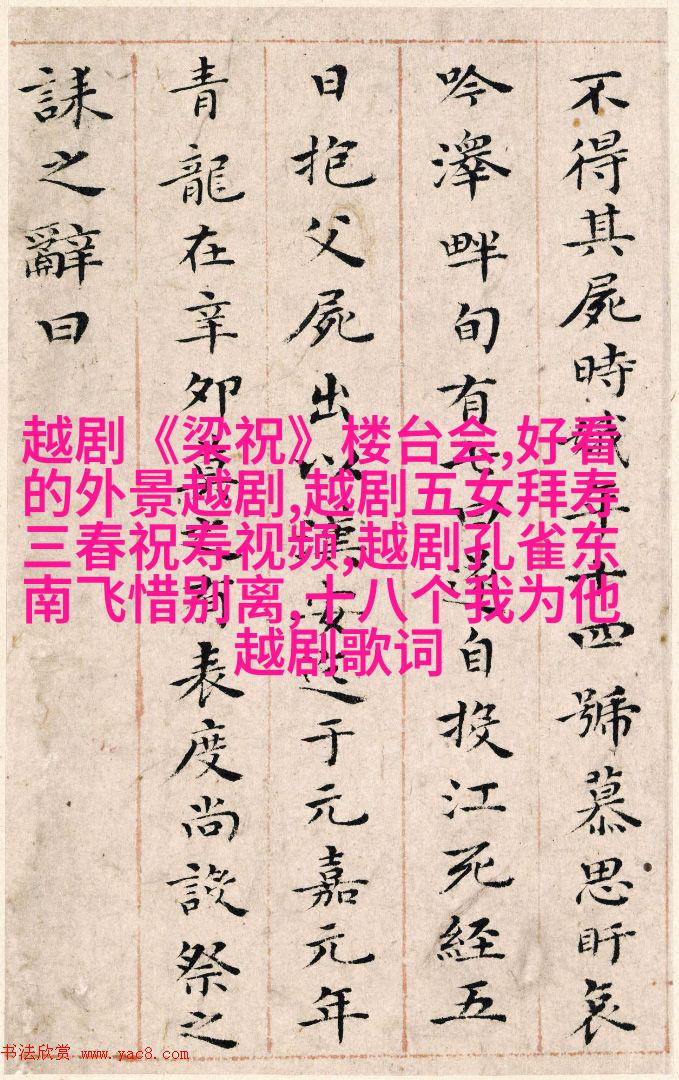 不得其屍時娥年十四號慕思盱哀
吟澤畔旬有七日遂自投江死經五
日抱父屍出以漢安迄于元嘉元年
青龍在辛卯莫之有表度尚設祭之
誄之辭曰
越剧《梁祝》楼台会,好看
的外景越剧,越剧五女拜寿
三春祝寿视频,越剧孔雀东
南飞惜别离,十八个我为他
越剧歌词
书法欣赏 www.yac8.com